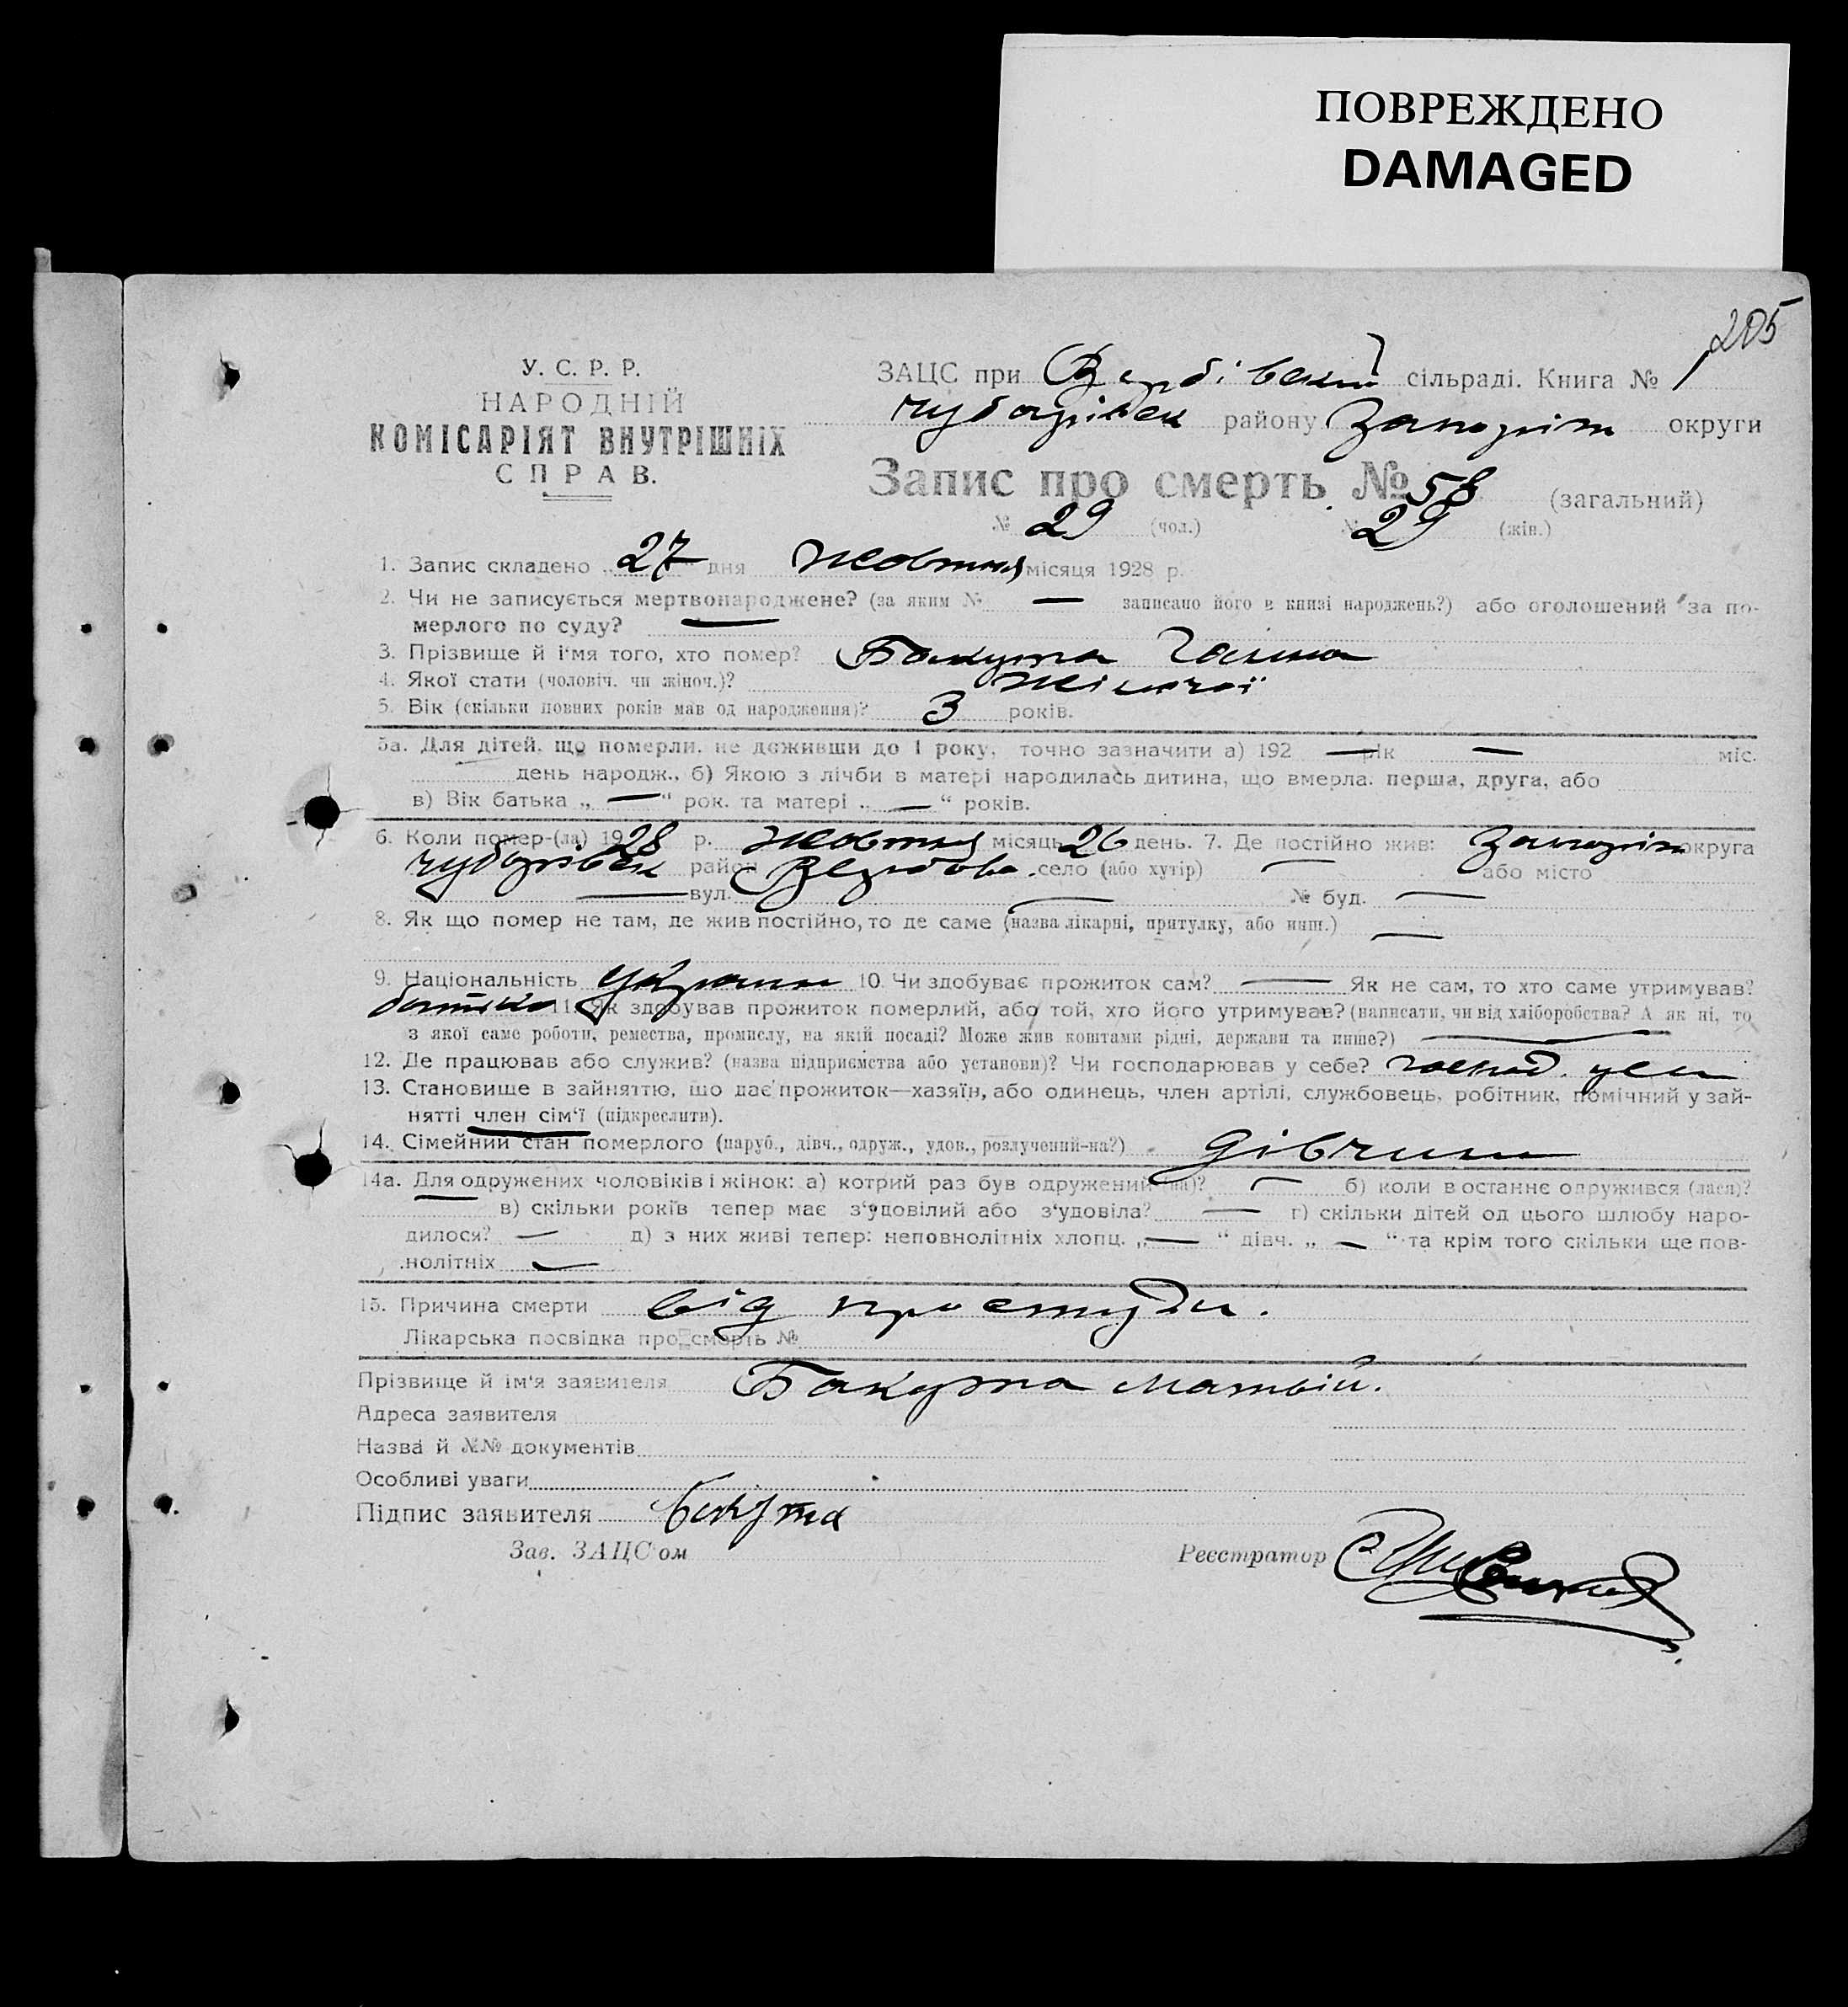 ПОВРЕЖДЕНО
DAMAGED
205
У. С. Р. Р.
НАРОДНІЙ
КОМІСАРІЯТ ВНУТРІШНІХ
СПРАВ.
ЗАЦС при Вербівській сільраді. Книга № 1
Чубарівськ району Запоріж округи
Запис про смерть № 58 (загальний)
№ 29 (чол.) № 29 (жін.)
1. Запис складено 27 дня жовтня місяця 1928 р.
2. Чи не записується мертвонароджене? (за яким № — записано його в книзі народжень?) або оголошений за по-
мерлого по суду? —
3. Прізвище й ім'я того, хто помер? Бакута Галина
4. Якої стати (чоловіч. чи жіноч.)? жіночої
5. Вік (скільки повних років мав од народження)? 3 років.
5а. Для дітей, що померли, не доживши до 1 року, точно зазначити а) 192 — рік — міс.
день народж., б) Якою з лічби в матері народилась дитина, що вмерла. перша, друга, або
в) Вік батька „ — “ рок. та матері „ — “ років.
6. Коли помер-(ла) 1928 р. жовтня місяць 26 день. 7. Де постійно жив: Запоріж округа
Чубарівськ район Вербова село (або хутір) — або місто
— вул. — № буд. —
8. Як що помер не там, де жив постійно, то де саме (назва лікарні, притулку, або инш.) —
9. Національність Україн 10. Чи здобуває прожиток сам? — Як не сам, то хто саме утримував?
батько 11. Як здобував прожиток померлий, або той, хто його утримував? (написати, чи від хліборобства? А як ні, то
з якої саме роботи, ремества, промислу, на якій посаді? Може жив коштами рідні, держави та инше?) —
12. Де працював або служив? (назва підприємства або установи)? Чи господарював у себе? господ. у себе
13. Становище в зайняттю, що дає прожиток—хазяїн, або одинець, член артілі, службовець, робітник, помічний у зай-
нятті член сім'ї (підкреслити).
14. Сімейний стан померлого (паруб., дівч., одруж., удов., розлучений-на?) дівчина
14а. Для одружених чоловіків і жінок: а) котрий раз був одружений (на)? — б) коли в останнє одружився (лася)?
— в) скільки років тепер має з'удовілий або з'удовіла? — г) скільки дітей од цього шлюбу наро-
дилося? — д) з них живі тепер: неповнолітніх хлопц. „ — “ дівч. „ — “ та крім того скільки ще пов-
нолітніх —
15. Причина смерти від простуди.
Лікарська посвідка про смерть №
Прізвище й ім'я заявителя Бакута Матвій.
Адреса заявителя
Назва й №№ документів
Особливі уваги
Підпис заявителя Бакута
Зав. ЗАЦС'ом
Реєстратор